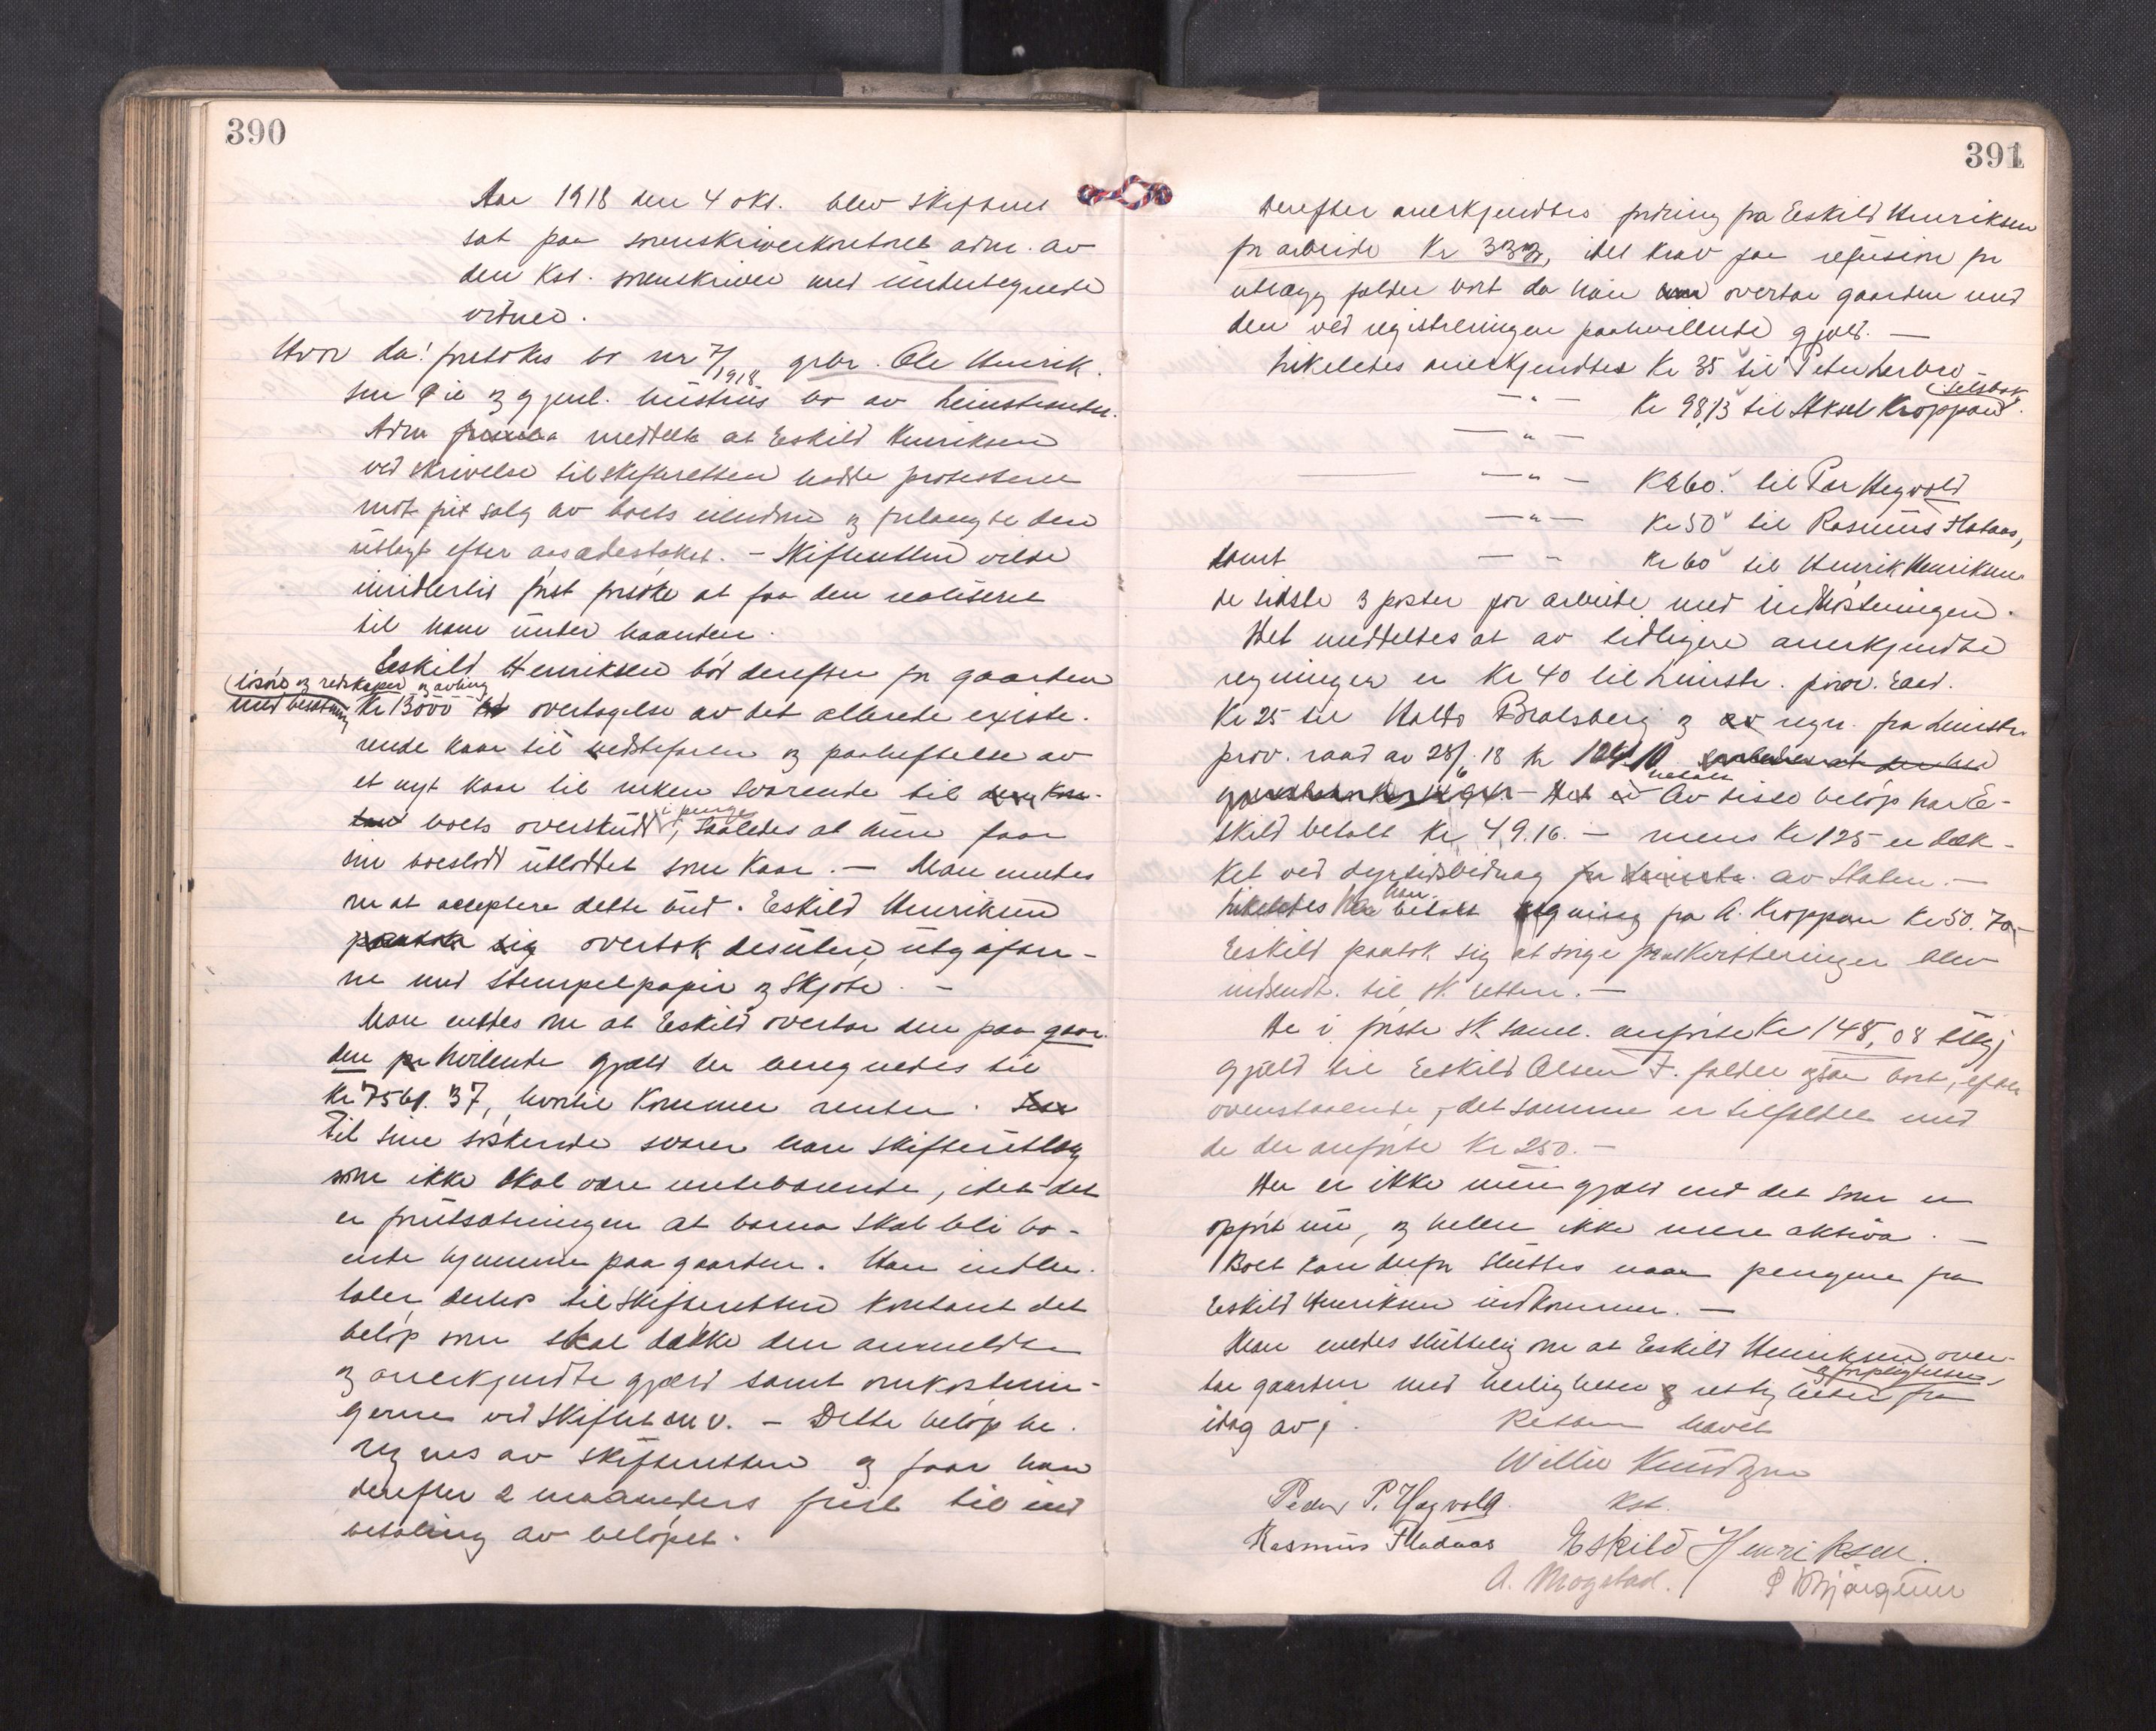 390
Aar 1918 den 4 okt. blev skifteret
sat paa sorenskriverkontoret adm. av
den kst. sorenskriver med undertegnede
vidner.
Hvor da! foretokes bo nr 7/1918 grbr. Ole Henrik-
sen og gjenl. hustrus bo av Leinstranden.
Adm meddelte at Eskild Henriksen
ved skrivelse til skifteretten hadde protestert
mot frit salg av boets eiendom og forlangte den
utlagt efter aasædestakst. - Skifteretten vilde
imidlertid først forsøke at faa den realisert
til ham under haanden.
Eskild Henriksen bød derefter for gaarden
(løsøre og redskaper og avling
med besetning Kr 13000 overtagelse av det allerede existe-
rende kaar til bedstefaren og paaheftelse av
et nyt kaar til enken svarende til
boets overskudd i penge, saaledes at hun faar
sin boeslodd utloddet som kaar. - Man enedes
om at acceptere dette bud. Eskild Henriksen
paatok sig overtok desuten utgifter-
ne med stempelpapir og skjøte. -
Man enedes om at Eskild overtar den paa gaar-
den hvilende gjæld der beregnedes til
Kr 7561.37, hvortil kommer renter.
Til sine søskende svarer han skifteutlæg
som ikke skal være rentebærende, idet det
er forutsætningen at barna skal bli bo-
ende hjemme paa gaarden. Han indbe-
taler derhos til skifteretten kontant det
beløp som skal dække den anmeldte
og anerkjendte gjæld samt omkostnin-
gerne ved skiftet m v. - Dette beløp be-
regnes av skifteretten og faar han
derefter 2 maaneders frist til ind
betaling av beløpet.
391
Derefter anerkjendtes fordring fra Eskild Henriksen
for arbeide Kr 333, idet krav paa refusion for
utlægg falder bort da han overtar gaarden med
den ved registreringen paahvilende gjæld. -
Likeledes anerkjendtes Kr 35 til Peter Lerbro -
(Selsbak
- " - Kr 98,13 til Aksel Kroppan.
- " -
- " - Kr 60. til Per Hegvold
- " - Kr 50 til Rasmus Flataas,
samt - - Kr 60 til Henrik Henriksen
de sidste 3 poster for arbeide med indhøstningen.
Det meddeltes at av tidligere anerkjendte
regninger er Kr 40 til Leinstr. prov. raad.
Kr 25 til Haldo Bratsberg og regn. fra Leinstr.
prov. raad av 28/6 18 Kr 124.10
Av disse beløp har E-
skild betalt Kr 49.16. - mens Kr 125 er dæk-
ket ved dyrtidsbidrag av Staten. -
Likeledes har han betalt regning fra A. Kroppan Kr 50.70 -
Eskild paatok sig at sørge for at kvitteringer blev
indsendt til sk. retten. -
De i første sk. saml. anførte Kr 148,08
gjæld til Eskild Olsen F. falder ogsaa bort, efter
ovenstaaende, det samme er tilfældet med
de der anførte Kr 250. -
Der er ikke mere gjæld end det som er
opført nu, og heller ikke mere aktiva. -
Boet kan derfor sluttes naar pengene fra
Eskild Henriksen indkommer. -
Man enedes sluttelig om at Eskild Henriksen over-
og forpligtelser
tar gaarden med herligheter og rettigheter fra
idag av.
Retten hævet
Willie Knudtzon
kst.
Peder P. Hegvold
Rasmus Flataas Eskild Henriksen.
A. Mogstad.